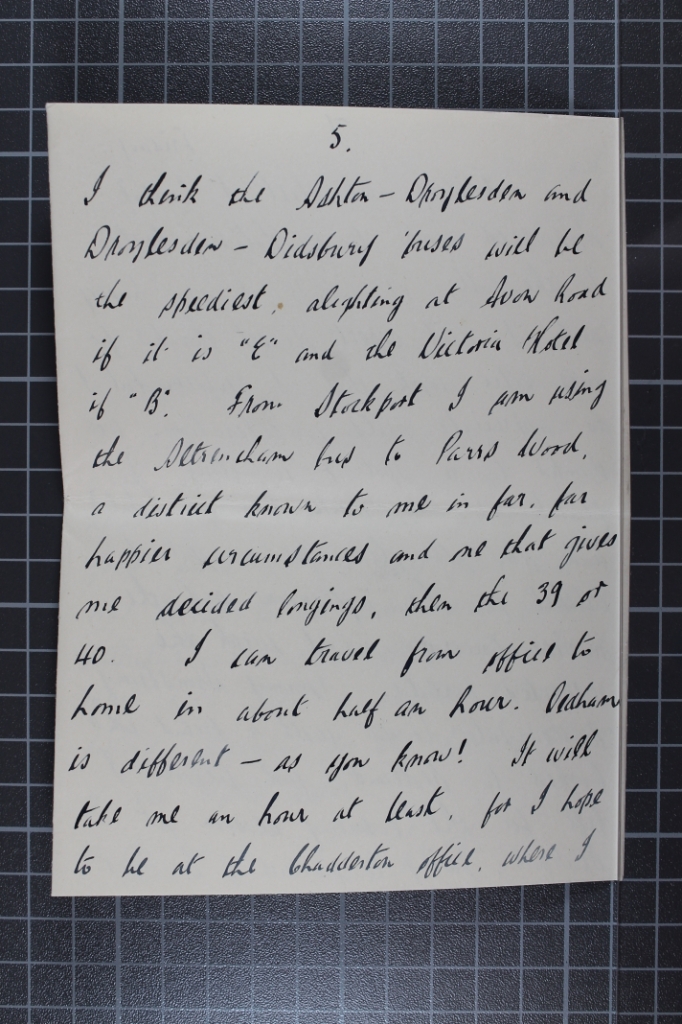 5.
I think the Ashton – Droylesden and
Droylesden – Didsbury 'buses will be
the speediest, alighting at Avon Road
if it is "E" and the Victoria Hotel
if "B". From Stockport I am using
the Altrincham bus to Parrs Wood,
a district known to me in far, far
happier circumstances and one that gives
me decided longings, then the 39 or
40. I can travel from office to
home in about half an hour. Oldham
is different – as you know! It will
take me an hour at least, for I hope
to be at the Chadderton office, where I